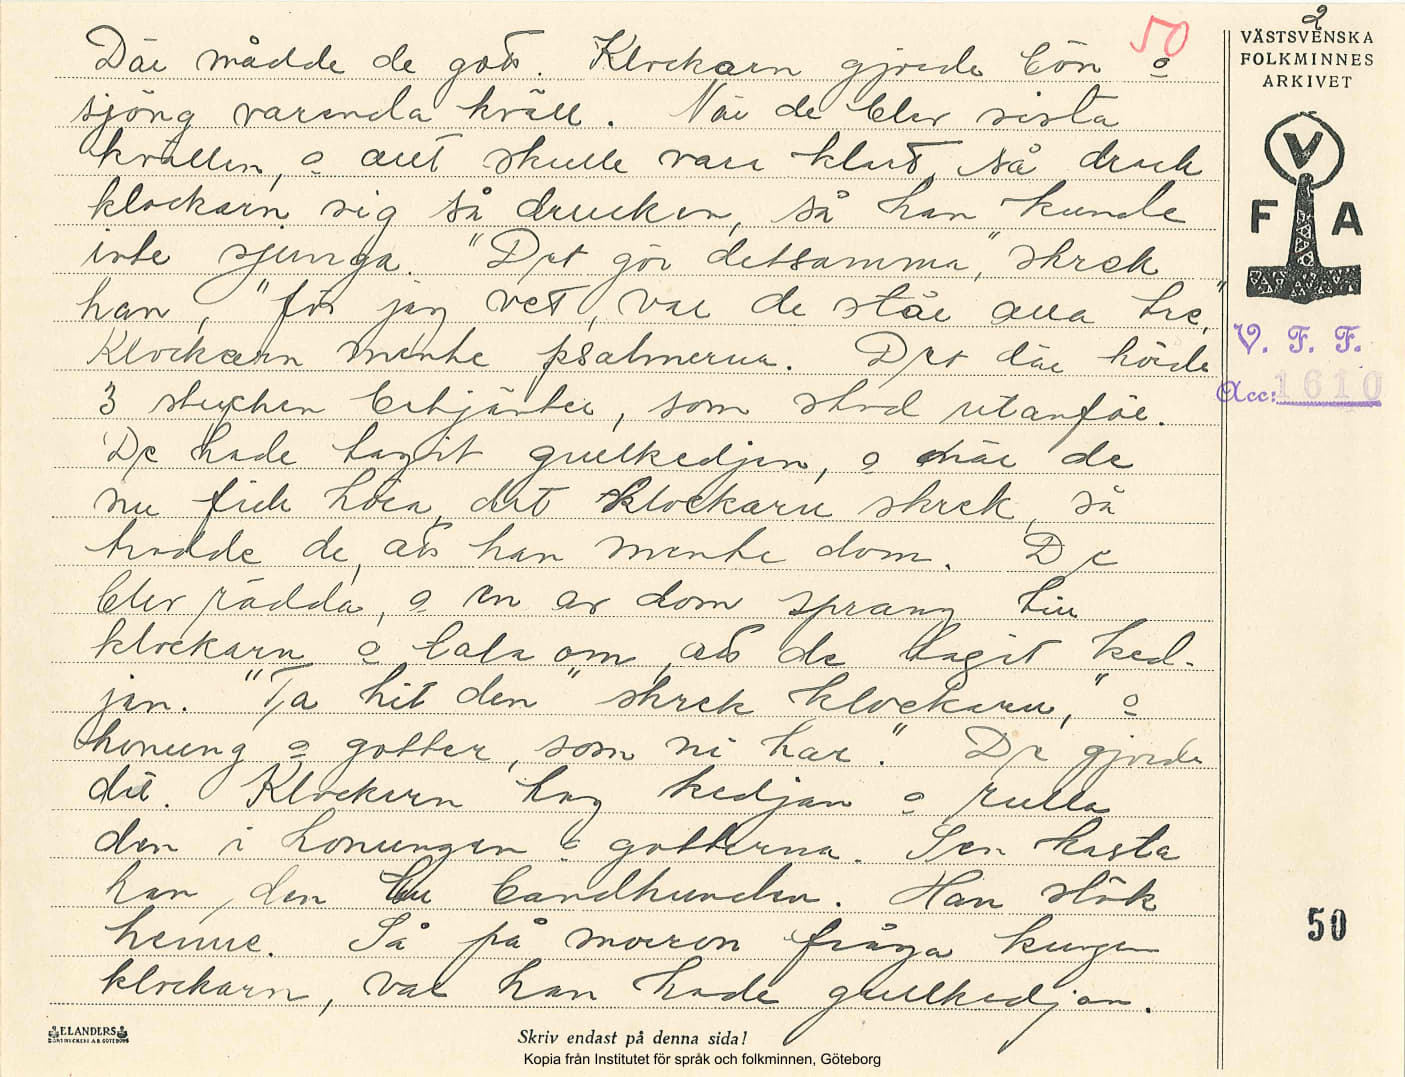 2
50
VÄSTSVENSKA
FOLKMINNES
ARKIVET
V
F A
V. F. F.
Acc: 1610
50
Där mådde de gott. Klockarn gjorde bön o
sjöng varenda kväll. När de blev sista
kvällen, o allt skulle vara klart, så drack
klockarn sig så drucken, så han kunde
inte sjunga. "Det gör detsamma," skrek
han, "för jag vet, var de står alla tre,"
Klockarn mente psalmerna. Det där hörde
3 stycken betjänter, som stod utanför.
De hade tagit gullkedjen, o när de
nu fick höra, det klockarn skrek, så
trodde de, att han mente dom. De
blev rädda, o en av dom sprang till
klockarn o tala om, att de tagit ked-
jan. "Ta hit den" skrek klockarn, "o
honung o gotter, som ni har." De gjorde
det. Klockarn tog kedjan o rulla
den i honungen o gotterna. Sen kasta
han den till bandhunden. Han slök
henne. Så på morron fråga kungen
klockarn, var han hade gullkedjan.
ELANDERS
BOKTRYCKERI A.B. GÖTEBORG
Skriv endast på denna sida!
Kopia från Institutet för språk och folkminnen, Göteborg